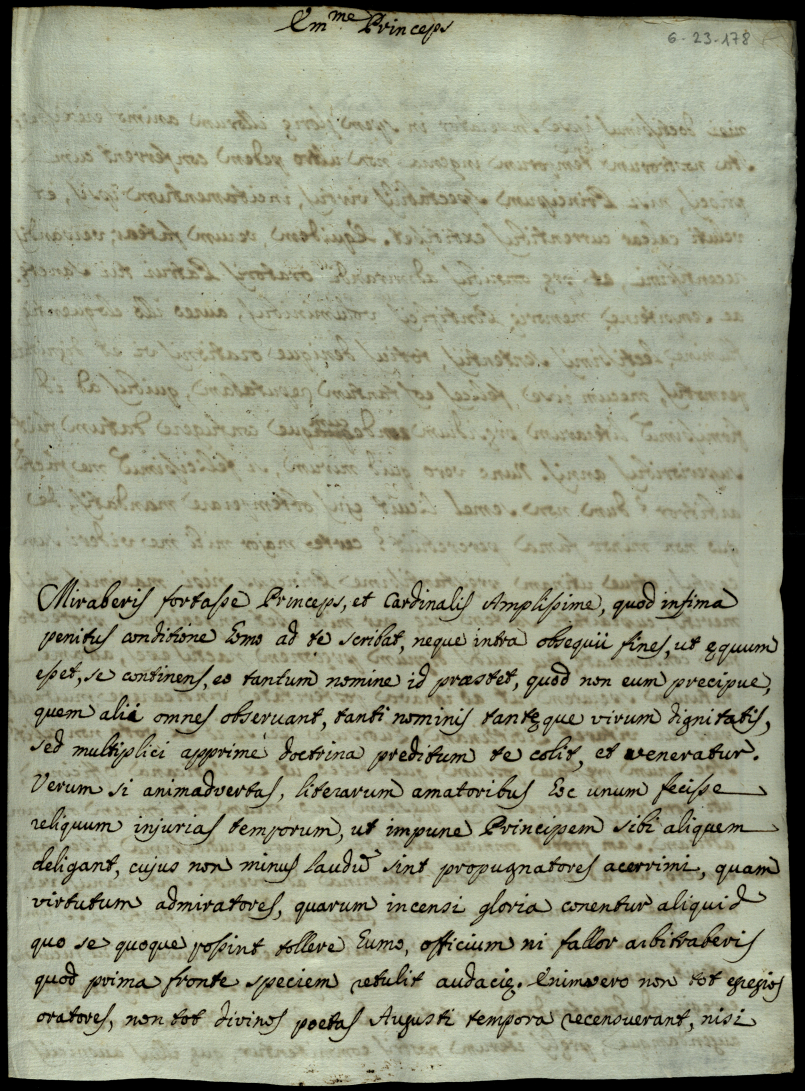 Em.me Princeps
6-23-178
Miraberis fortasse Princeps, et Cardinalis Amplissime, quod infima
penitus conditione homo ad te scribat, neque intra obsequii fines, ut ęquum
esset, se continens, eo tantum nomine id praestet, quod non eum precipue,
quem alii omnes observant, tanti nominis tantęque virum dignitatis,
sed multiplici apprimè doctrina preditum te colit, et veneratur.
Verum si animadvertas, literarum amatoribus hoc unum fecisse
reliquum injurias temporum, ut impune Principem sibi aliquem
deligant, cujus non minus laudũ sint propugnatores acerrimi, quam
virtutum admiratores, quarum incensi gloria conentur aliquid
quo se quoque possint tollere humo, officium ni fallor arbitraberis
quod prima fronte speciem retulit audacię. Enimvero non tot egregios
oratores, non tot divinos poetas Augusti tempora recensuerant, nisi